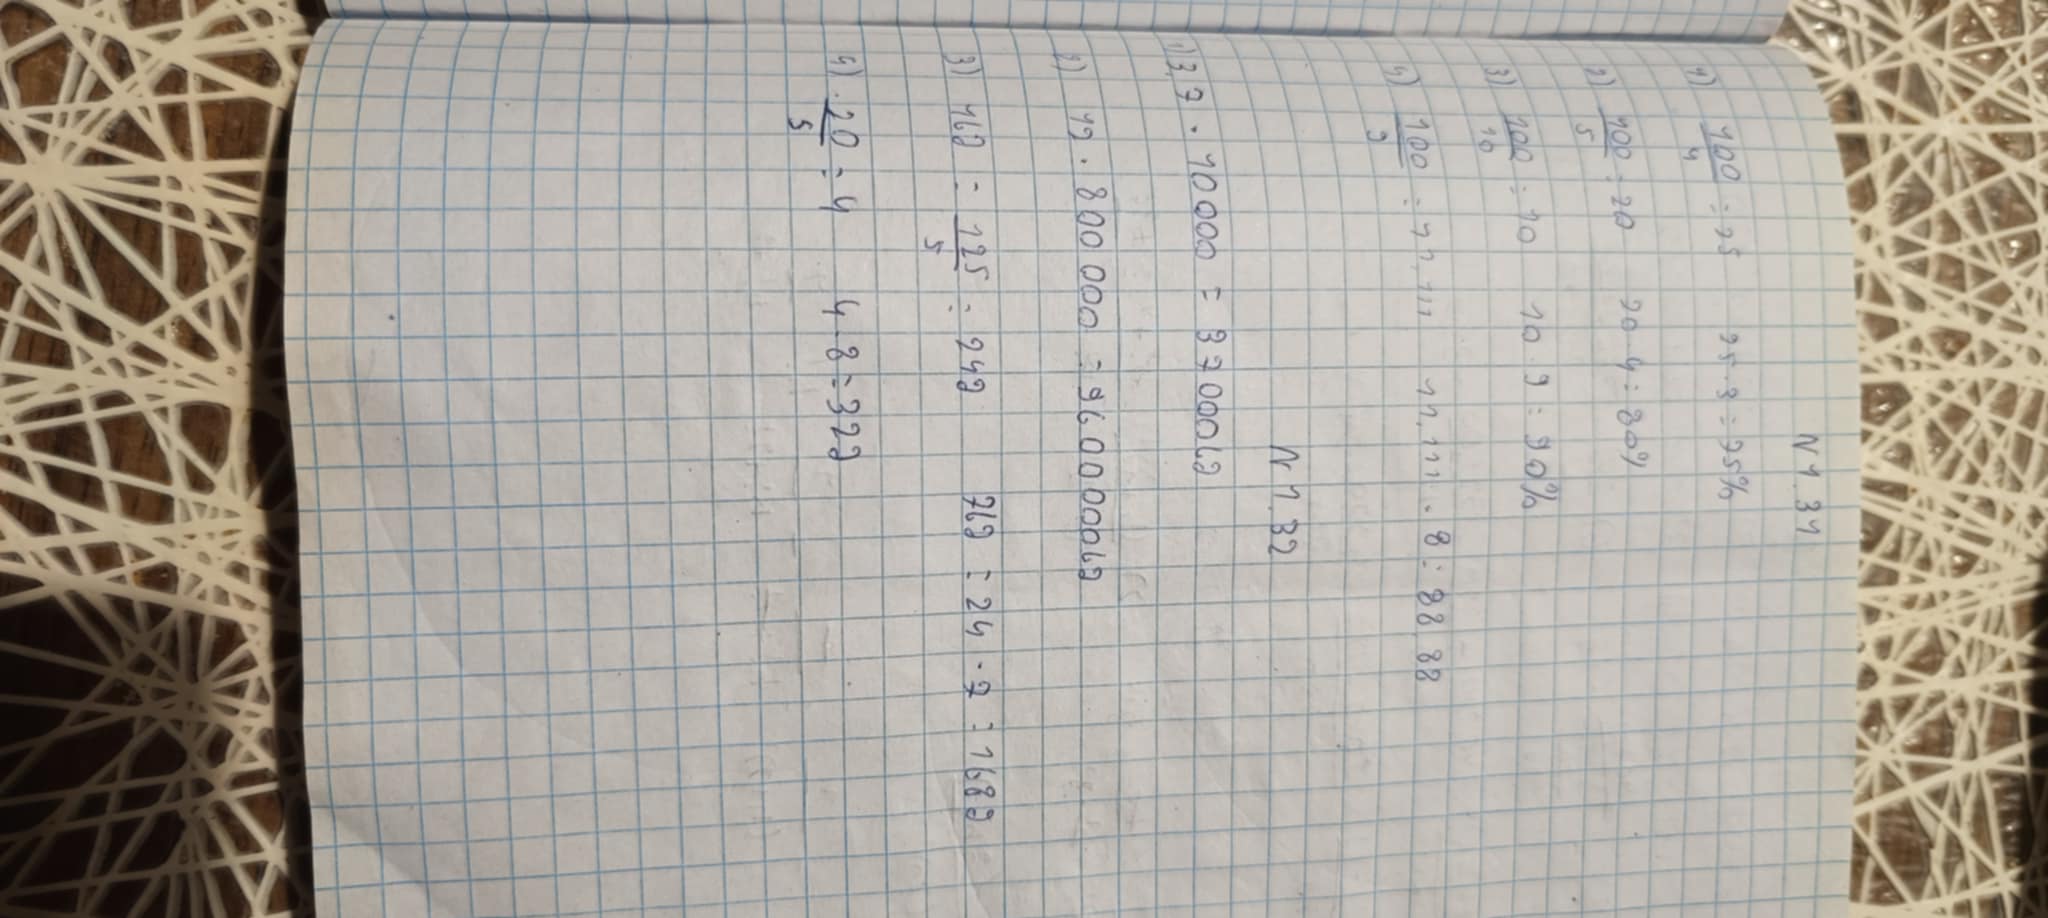 N 1.31
1) 100/4 = 25 25·3 = 75%
2) 100/5 = 20 20·4 = 80%
3) 100/10 = 10 10·9 = 90%
4) 100/9 = 11,111 11,111·8 = 88,88
N 1.32
1) 3,7·10000 = 37000
2) 12·800 000 = 9600000
3) = 125/5 = = 24·7 = 168
4) 20/5 = 4 4·8 = 32